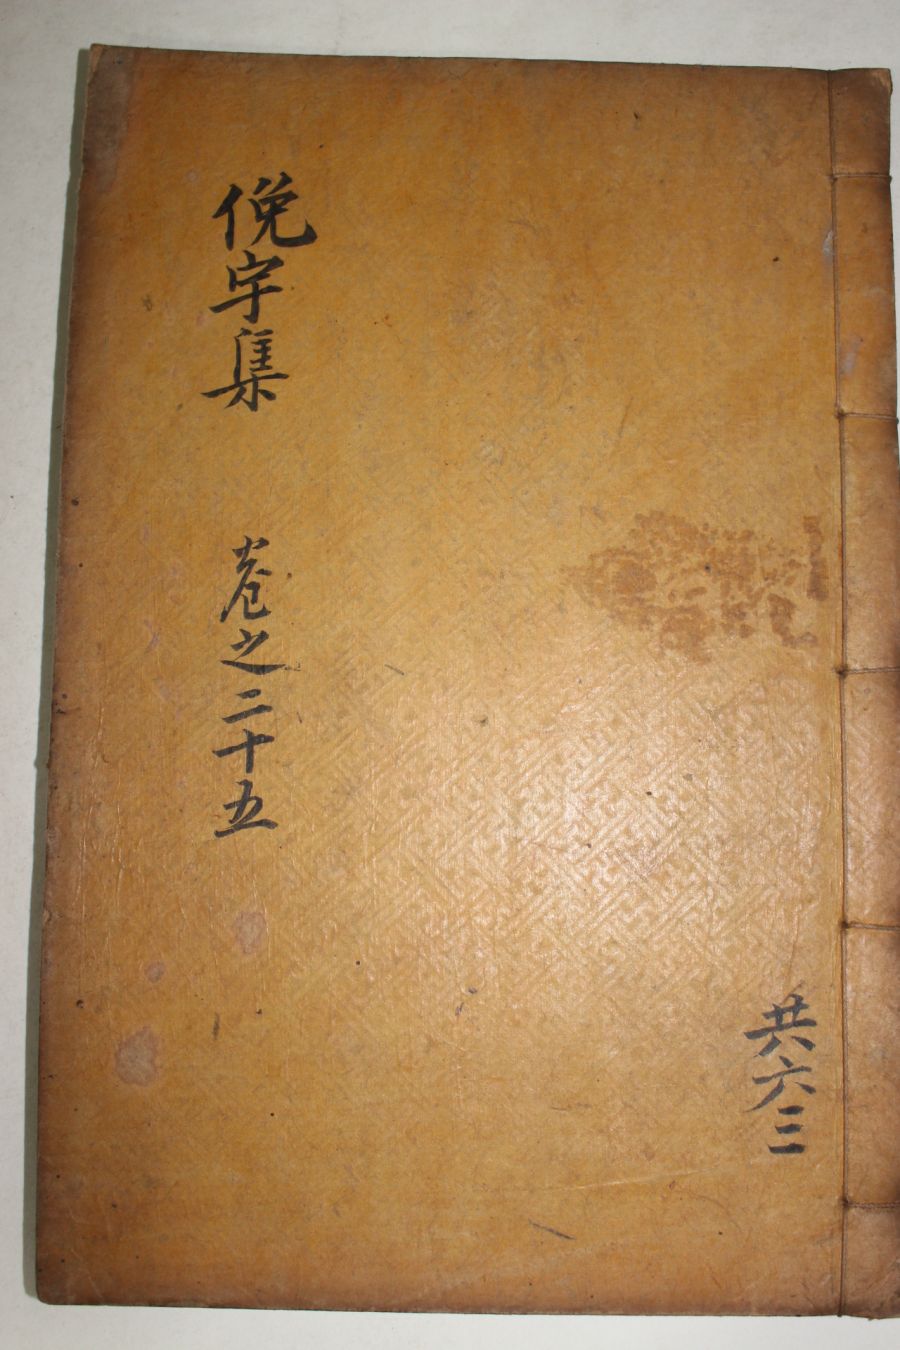 俛宇集 卷之二十五
共六三